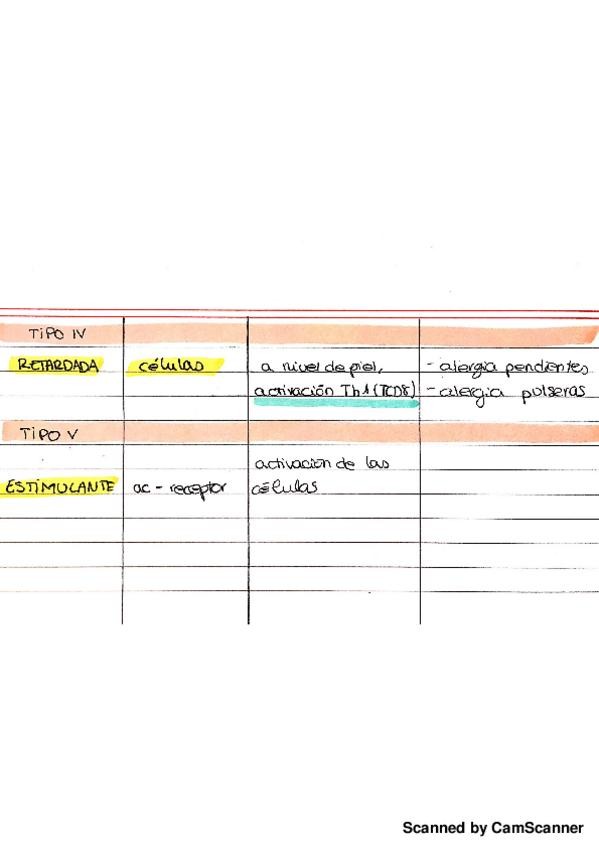 TIPO IV
RETARDADA células a nivel de piel, - alergia pendientes
activación Th1 (TCD8) - alergia pulseras
TIPO V
activación de las
ESTIMULANTE ac - receptor células
Scanned by CamScanner